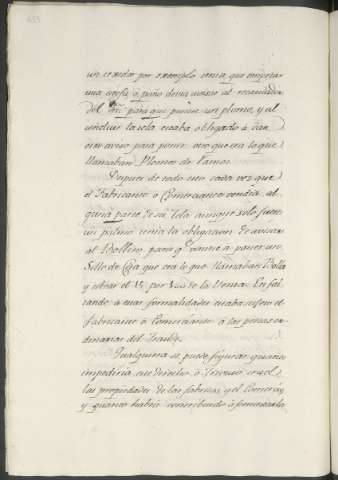 un texedor por exemplo tenia que empezar
una estofa o paño devia avisar al recaudador
del dro. para que pusiese un plomo, y al
concluir la tela estaba obligado à dar
otro aviso para poner otro que era lo que
llamaban Plomos de ramos.
Despues de todo esto cada vez que
el Fabricante ò Comerciante vendia al-
guna parte de su tela aunque solo fuese
un palmo tenia la obligacion de avisar
al Bollero para q.e vaya à poner un
Sello de Cera que era lo que llamaban Bolla
y cobrar el 15 por de la Venta. En fal-
tando à estas formalidades estaba sujeto el
Fabricante ò Comerciante à las penas or-
dinarias del fraude.
Qualquiera se puede figurar quanto
impediria este derecho ò Tributo cruel
las propiedades de las fabricas y el Comercio
y quanto habrá contribuido à fomentarlo